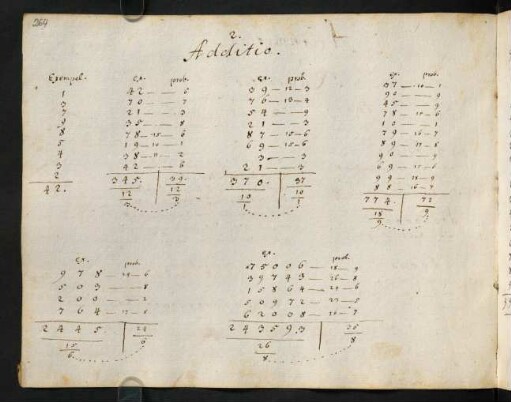 264
2.
Additio.
Exempel. ex. prob. ex. prob. ex. prob.
1 42 — 6 39 — 12 — 3 37 — 10 — 1
3 70 — 7 76 — 13 — 4 90 — 9
7 21 — 3 54 — 9 45 — 9
9 35 — 8 21 — 3 78 — 15 — 6
8 78 — 15 — 6 87 — 15 — 6 10 — 1
5 19 — 10 — 1 69 — 15 — 6 79 — 16 — 7
4 38 — 11 — 2 3 — 3 89 — 17 — 8
3 42 — 6 21 — 3 90 — 9
2 345. 39. 370. 37 69 — 15 — 6
42. 12 12 10 10 99 — 18 — 9
3 3 1 1 88 — 16 — 7
774. 72
18 9
9
ex. prob. ex. prob.
978 — 24 — 6 75006 — 18 — 9
503 — 8 39743 — 26 — 8
200 — 2 15864 — 24 — 6
764 — 17 — 8 50972 — 23 — 5
62008 — 16 — 7
2445. 24 243593. 35
15 6 26 8
6 8